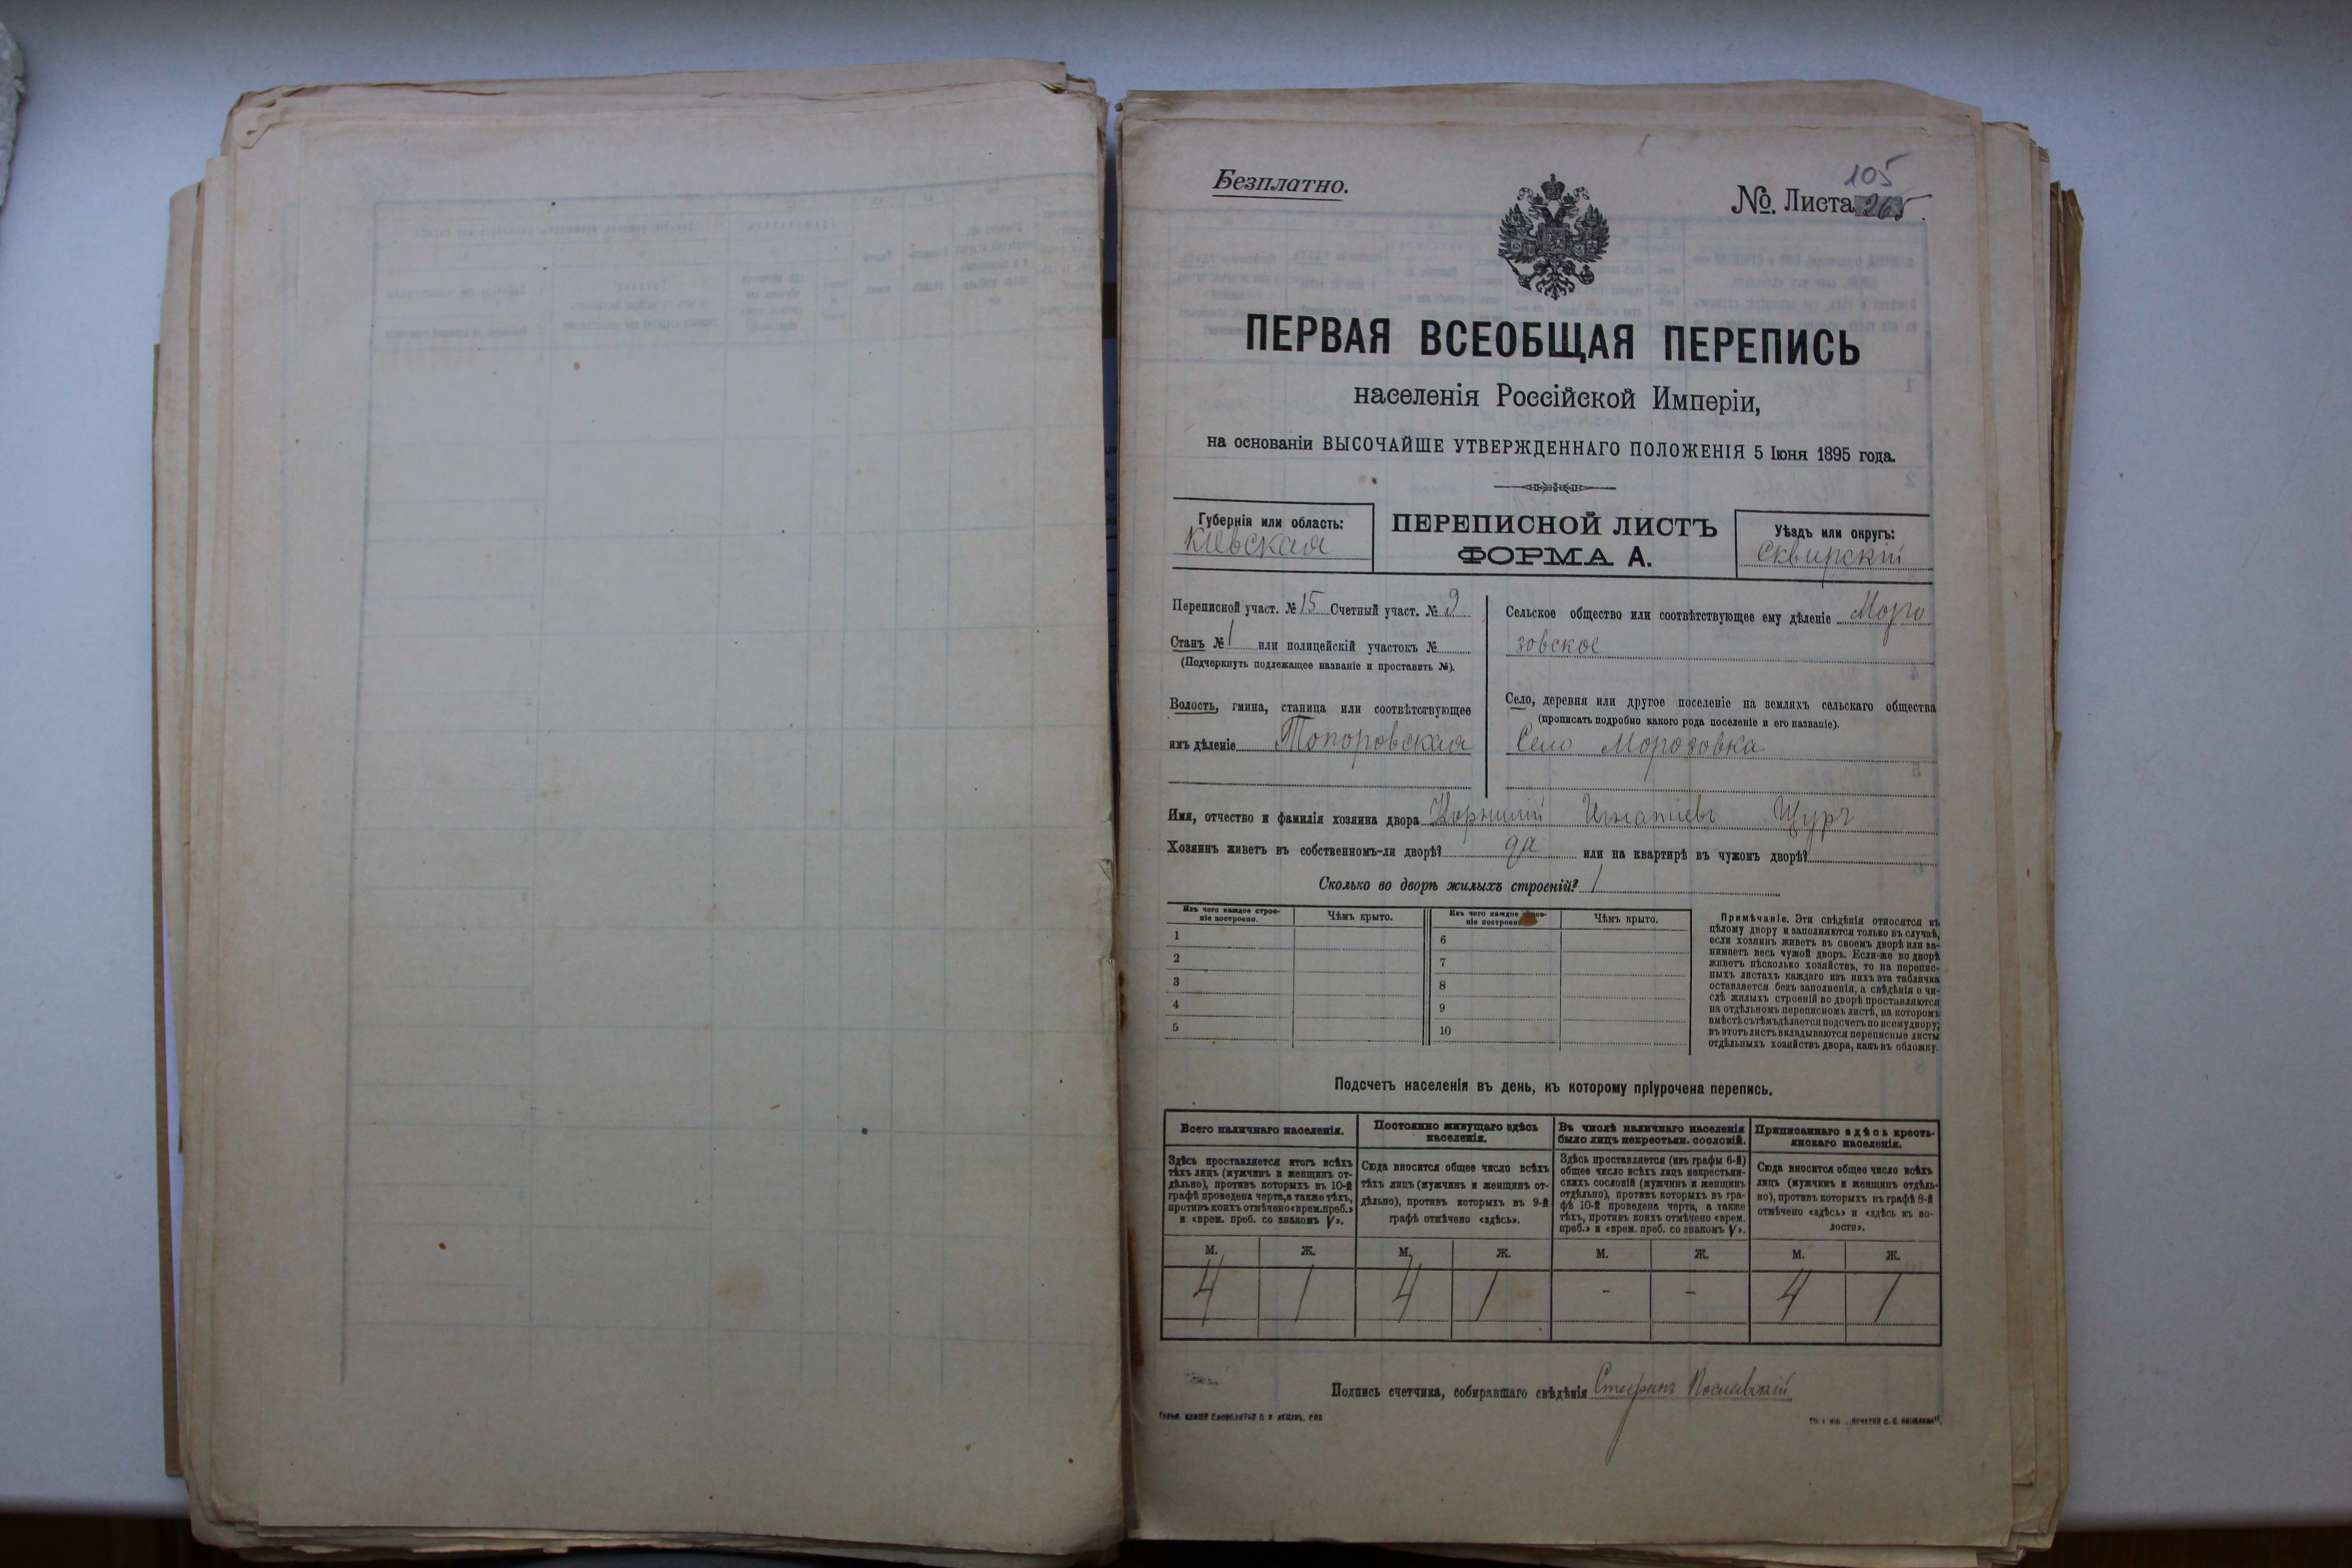 Безплатно.
105
№. Листа 265.
ПЕРВАЯ ВСЕОБЩАЯ ПЕРЕПИСЬ
населенія Россійской Имперіи,
на основаніи ВЫСОЧАЙШЕ УТВЕРЖДЕННАГО ПОЛОЖЕНІЯ 5 Іюня 1895 года.
Губернія или область:
Кіевская
ПЕРЕПИСНОЙ ЛИСТЪ
ФОРМА А.
Уѣздъ или округъ:
Сквирскій
Переписной участ. № 15 Счетный участ. № 9
Станъ № 1 или полицейскій участокъ №
(Подчеркнуть подлежащее названіе и проставить №).
Волость, гмина, станица или соотвѣтствующее
имъ дѣленіе Топоровская
Сельское общество или соотвѣтствующее ему дѣленіе Моро
зовское
Село, деревня или другое поселеніе на земляхъ сельскаго общества
(прописать подробно какого рода поселеніе и его названіе).
Село Морозовка
Имя, отчество и фамилія хозяина двора Корнилій Игнатіевъ Щуръ
Хозяинъ живетъ въ собственномъ-ли дворѣ? да или на квартирѣ въ чужомъ дворѣ?
Сколько во дворѣ жилыхъ строеній? 1
Изъ чего каждое строе-
ніе построено.
Чѣмъ крыто.
1
2
3
4
5
Изъ чего каждое строе-
ніе построено.
Чѣмъ крыто.
6
7
8
9
10
Примѣчаніе. Эти свѣдѣнія относятся къ
цѣлому двору и заполняются только въ случаѣ,
если хозяинъ живетъ въ своемъ дворѣ или за-
нимаетъ весь чужой дворъ. Если-же во дворѣ
живетъ нѣсколько хозяйствъ, то на перепис-
ныхъ листахъ каждаго изъ нихъ эта табличка
оставляется безъ заполненія, а свѣдѣнія о чи-
слѣ жилыхъ строеній во дворѣ проставляются
на отдѣльномъ переписномъ листѣ, на которомъ
вмѣстѣ съ тѣмъ дѣлается подсчетъ по всему двору;
въ этотъ листъ вкладываются переписные листы
отдѣльныхъ хозяйствъ двора, какъ въ обложку.
Подсчетъ населенія въ день, къ которому пріурочена перепись.
Всего наличнаго населенія.
Здѣсь проставляется итогъ всѣхъ
тѣхъ лицъ (мужчинъ и женщинъ от-
дѣльно), противъ которыхъ въ 10-й
графѣ проведена черта, а также тѣхъ,
противъ коихъ отмѣчено «врем. преб.»
и «врем. преб. со знакомъ V».
М. Ж.
4 1
Постоянно живущаго здѣсь
населенія.
Сюда вносится общее число всѣхъ
тѣхъ лицъ (мужчинъ и женщинъ от-
дѣльно), противъ которыхъ въ 9-й
графѣ отмѣчено «здѣсь».
М. Ж.
4 1
Въ числѣ наличнаго населенія
было лицъ некрестьян. сословій.
Здѣсь проставляется (изъ графы 6-й)
общее число всѣхъ лицъ некрестьян-
скихъ сословій (мужчинъ и женщинъ
отдѣльно), противъ которыхъ въ гра-
фѣ 10-й проведена черта, а также
тѣхъ, противъ коихъ отмѣчено «врем.
преб.» и «врем. преб. со знакомъ V».
М. Ж.
- -
Приписаннаго здѣсь кресть-
янскаго населенія.
Сюда вносится общее число всѣхъ
лицъ (мужчинъ и женщинъ отдѣль-
но), противъ которыхъ въ графѣ 8-й
отмѣчено «здѣсь» и «здѣсь къ во-
лости».
М. Ж.
4 1
Подпись счетчика, собиравшаго свѣдѣнія Стефанъ